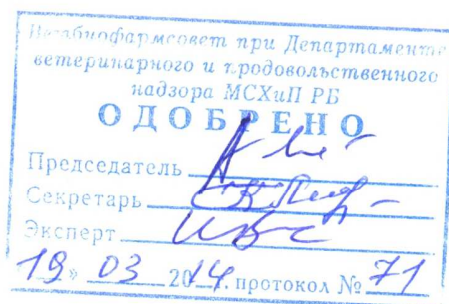 Ветбиофармсовет при Департаменте
ветеринарного и продовольственного
надзора МСХиП РБ
ОДОБРЕНО
Председатель
Секретарь
Эксперт
19» 03 2014. протокол № 71